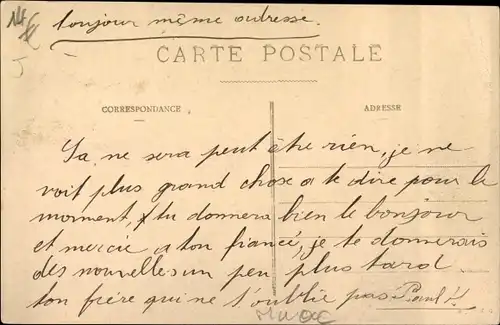 toujour même adresse.
CARTE POSTALE
CORRESPONDANCE
ADRESSE
Sa ne sera peut être rien, je ne
voit plus grand chose a te dire pour le
moment, tu donnera bien le bonjour
et mercie a ton fiancé, je te donnerais
des nouvelles un peu plus tard
ton frère qui ne t'oublie pas Paul